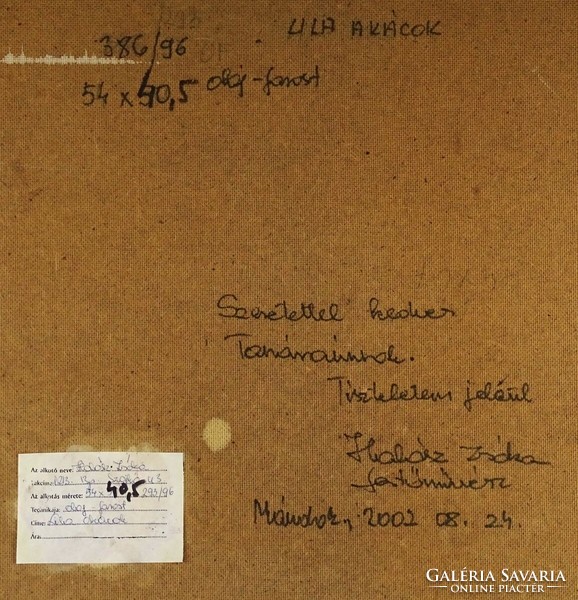 LILA AKÁCOK
386/96
54 x 40,5 olaj-farost
Szeretettel kedves
Tanárainknak.
Tiszteletem jeléül
Halász Zsóka
festőművész
Mándok, 2002 08. 24.
Az alkotó neve: Halász Zsóka
Lakcíme:
Az alkotás mérete: 54x 40,5 293/96
Technikája: olaj farost
Címe: Lila Akácok
Ára:
GALÉRIA SAVARIA
ONLINE PIACTÉR